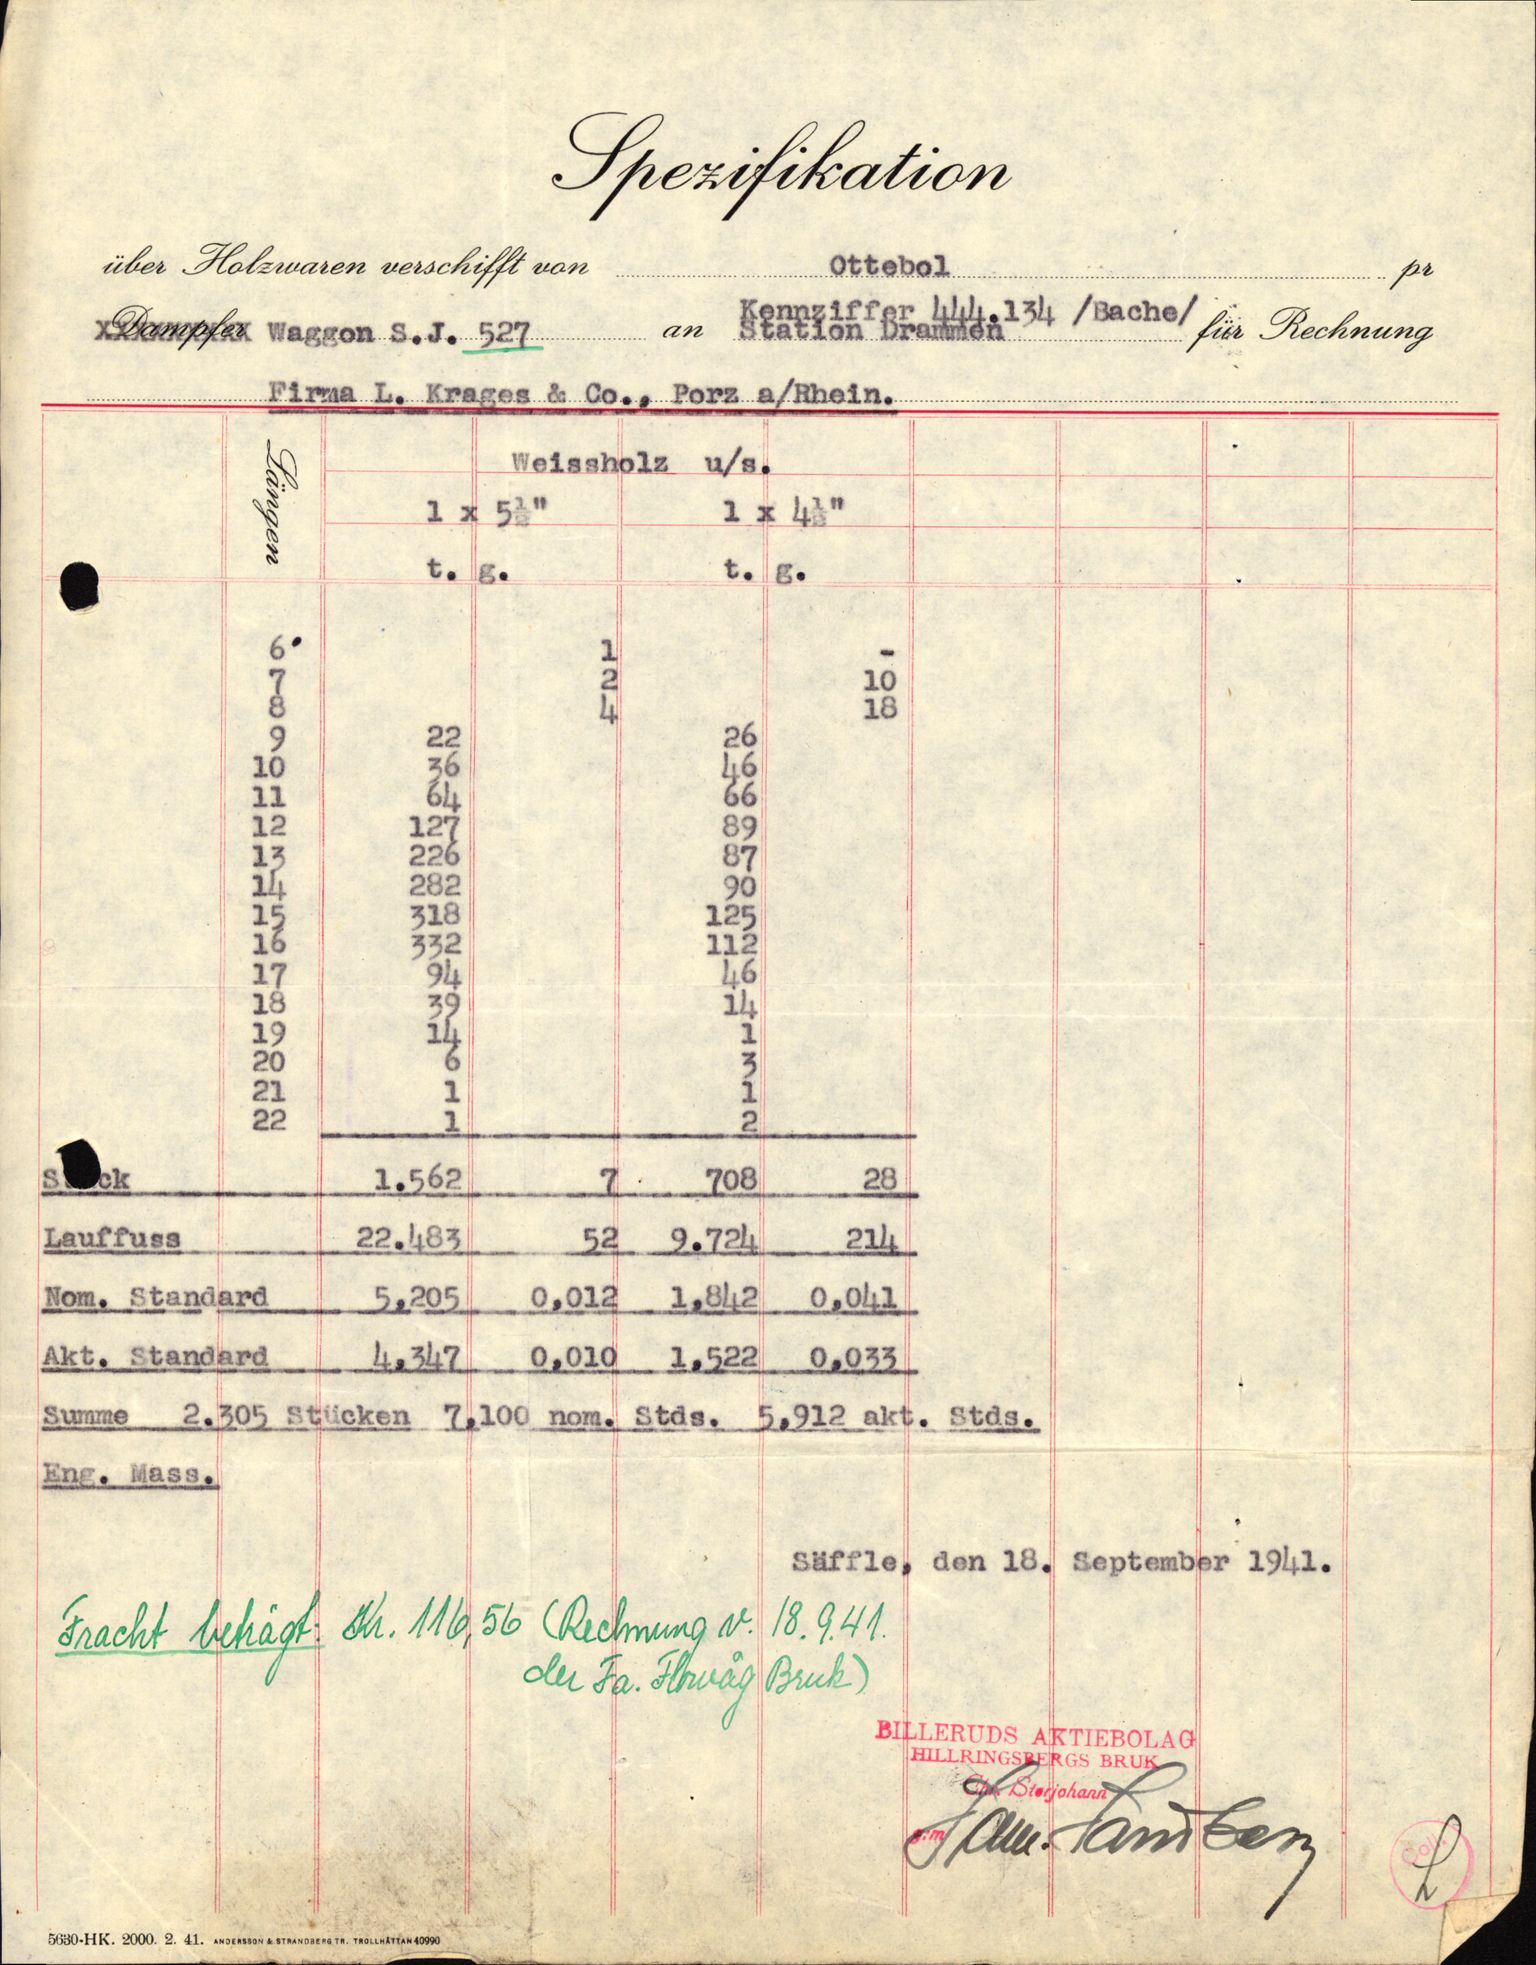 Spezifikation
über Holzwaren verschifft von Ottebol pr
Dampfer Waggon S.J. 527 an Kennziffer 444.134 /Bache/
Station Drammen für Rechnung
Firma L. Krages & Co., Porz a/Rhein.
Längen
Weissholz u/s.
1 x 5½" 1 x 4½"
t. g. t. g.
6 1 -
7 2 10
8 4 18
9 22 26
10 36 46
11 64 66
12 127 89
13 226 87
14 282 90
15 318 125
16 332 112
17 94 46
18 39 14
19 14 1
20 6 3
21 1 1
22 1 2
S ck 1.562 7 708 28
Lauffuss 22.483 52 9.724 214
Nom. Standard 5,205 0,012 1,842 0,041
Akt. Standard 4,347 0,010 1,522 0,033
Summe 2.305 Stücken 7,100 nom. Stds. 5,912 akt. Stds.
Eng. Mass.
Säffle, den 18. September 1941.
Fracht beträgt: Kr. 116,56 (Rechnung v. 18.9.41.
der Fa. Florvåg Bruk)
BILLERUDS AKTIEBOLAG
HILLRINGSBERGS BRUK
Chr. Storjohann
5630-HK. 2000. 2. 41. ANDERSSON & STRANDBERG TR. TROLLHÄTTAN 40990